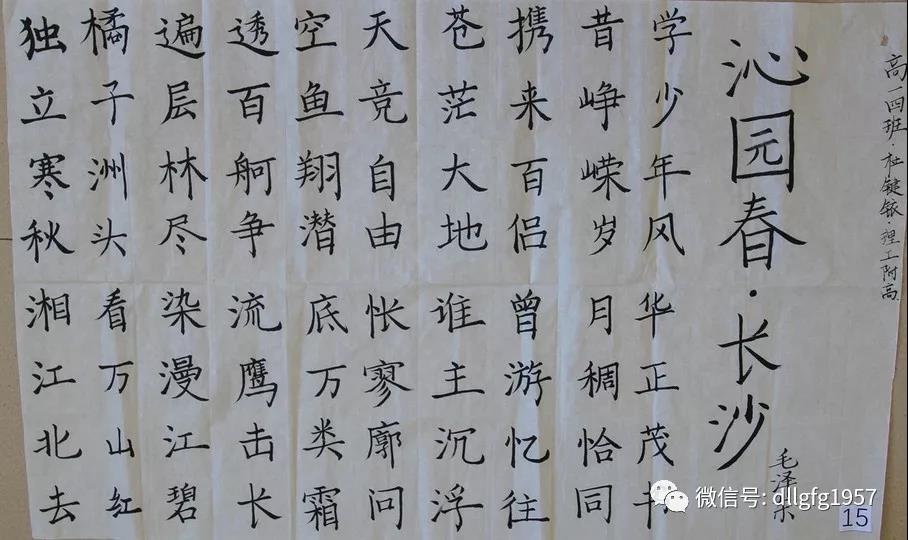 高一四班·杜键·理工附高
沁园春·长沙
毛泽东
独立寒秋湘江北去
橘子洲头看万山红
遍层林尽染漫江碧
透百舸争流鹰击长
空鱼翔潜底万类霜
天竞自由怅寥廓问
苍茫大地谁主沉浮
携来百侣曾游忆往
昔峥嵘岁月稠恰同
学少年风华正茂书
微信号: dllgfg1957
15